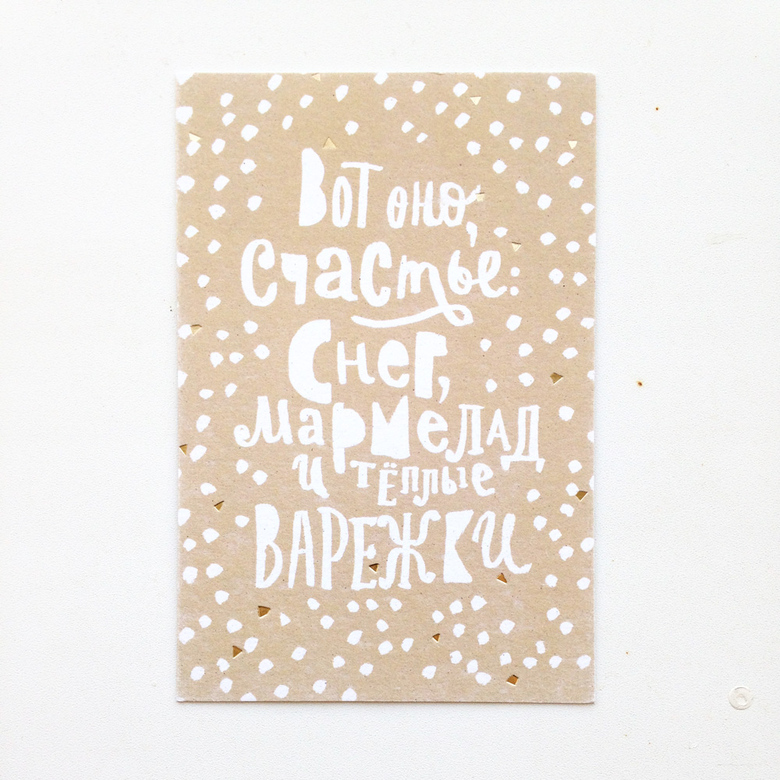 Вот оно,
счастье:
Снег,
мармелад
и тёплые
ВАРЕЖКИ